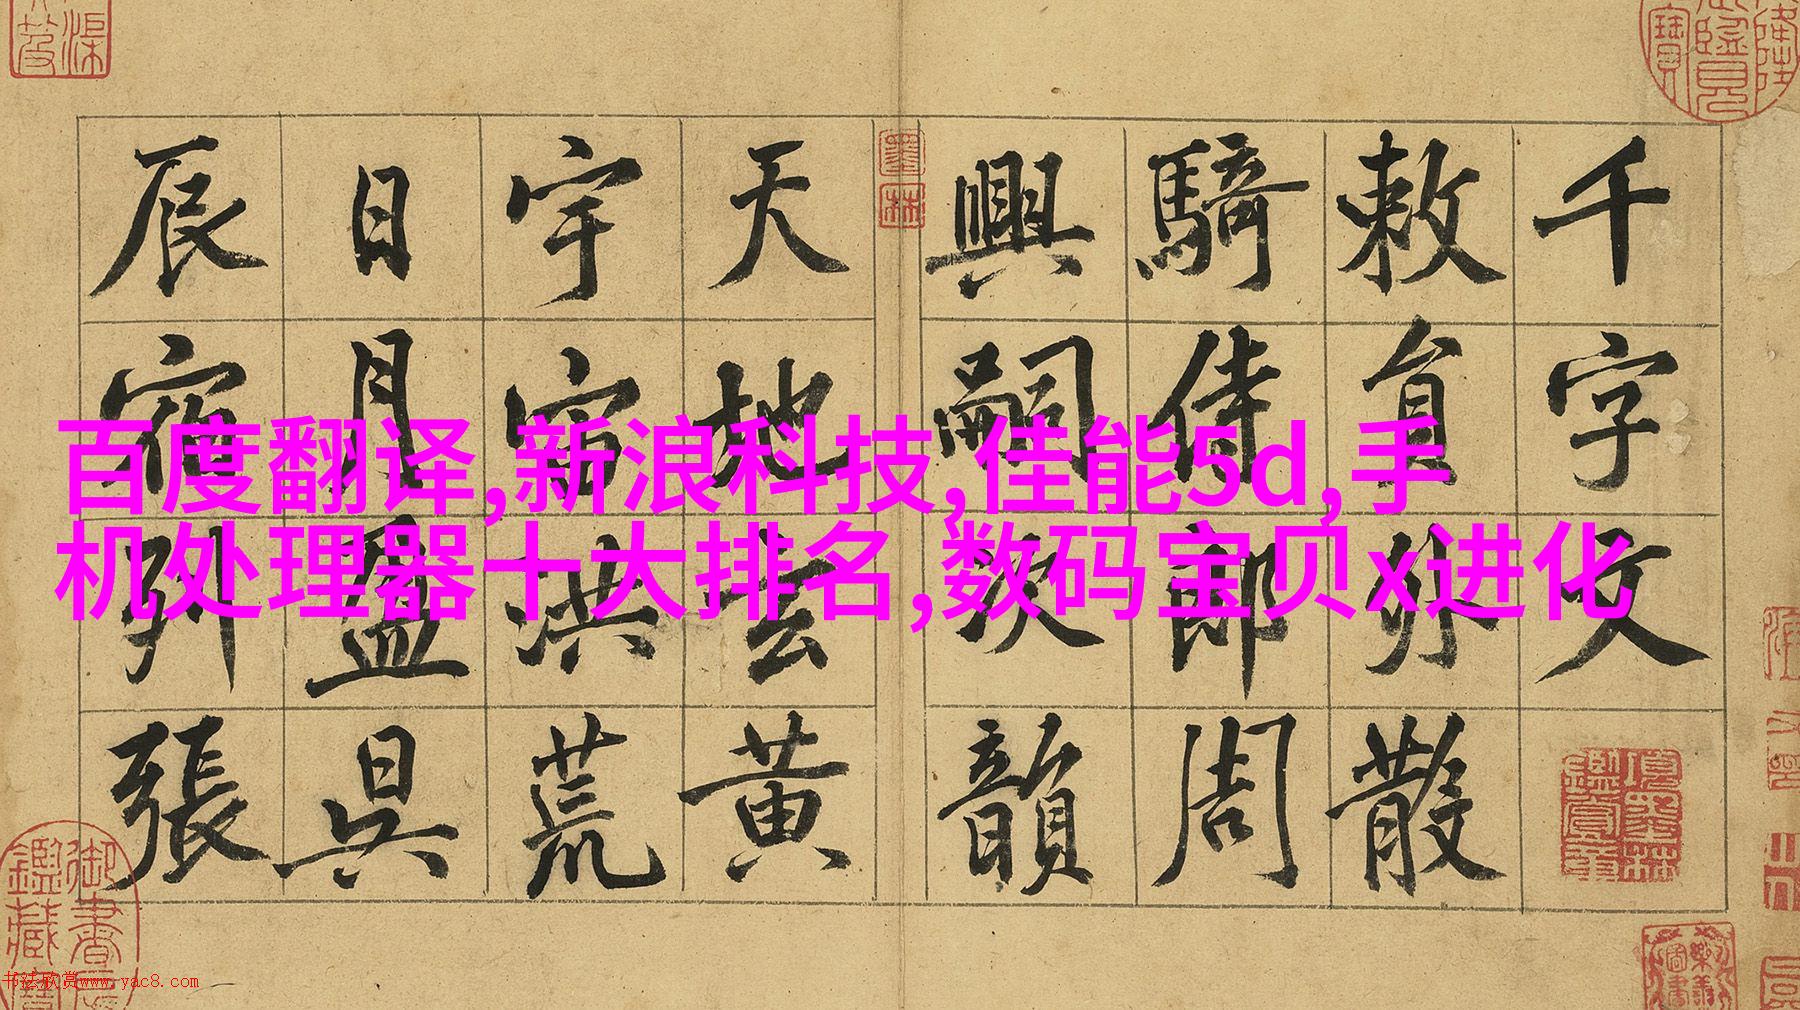 百度翻译,新浪科技,佳能5d,手
机处理器十大排名,数码宝贝x进化
千字文
敕員外散
騎侍郎周
興嗣次韻
天地玄黃
宇宙洪荒
日月盈昃
辰宿列張
墨林
項墨林鑑賞章
书法欣赏www.yac8.com